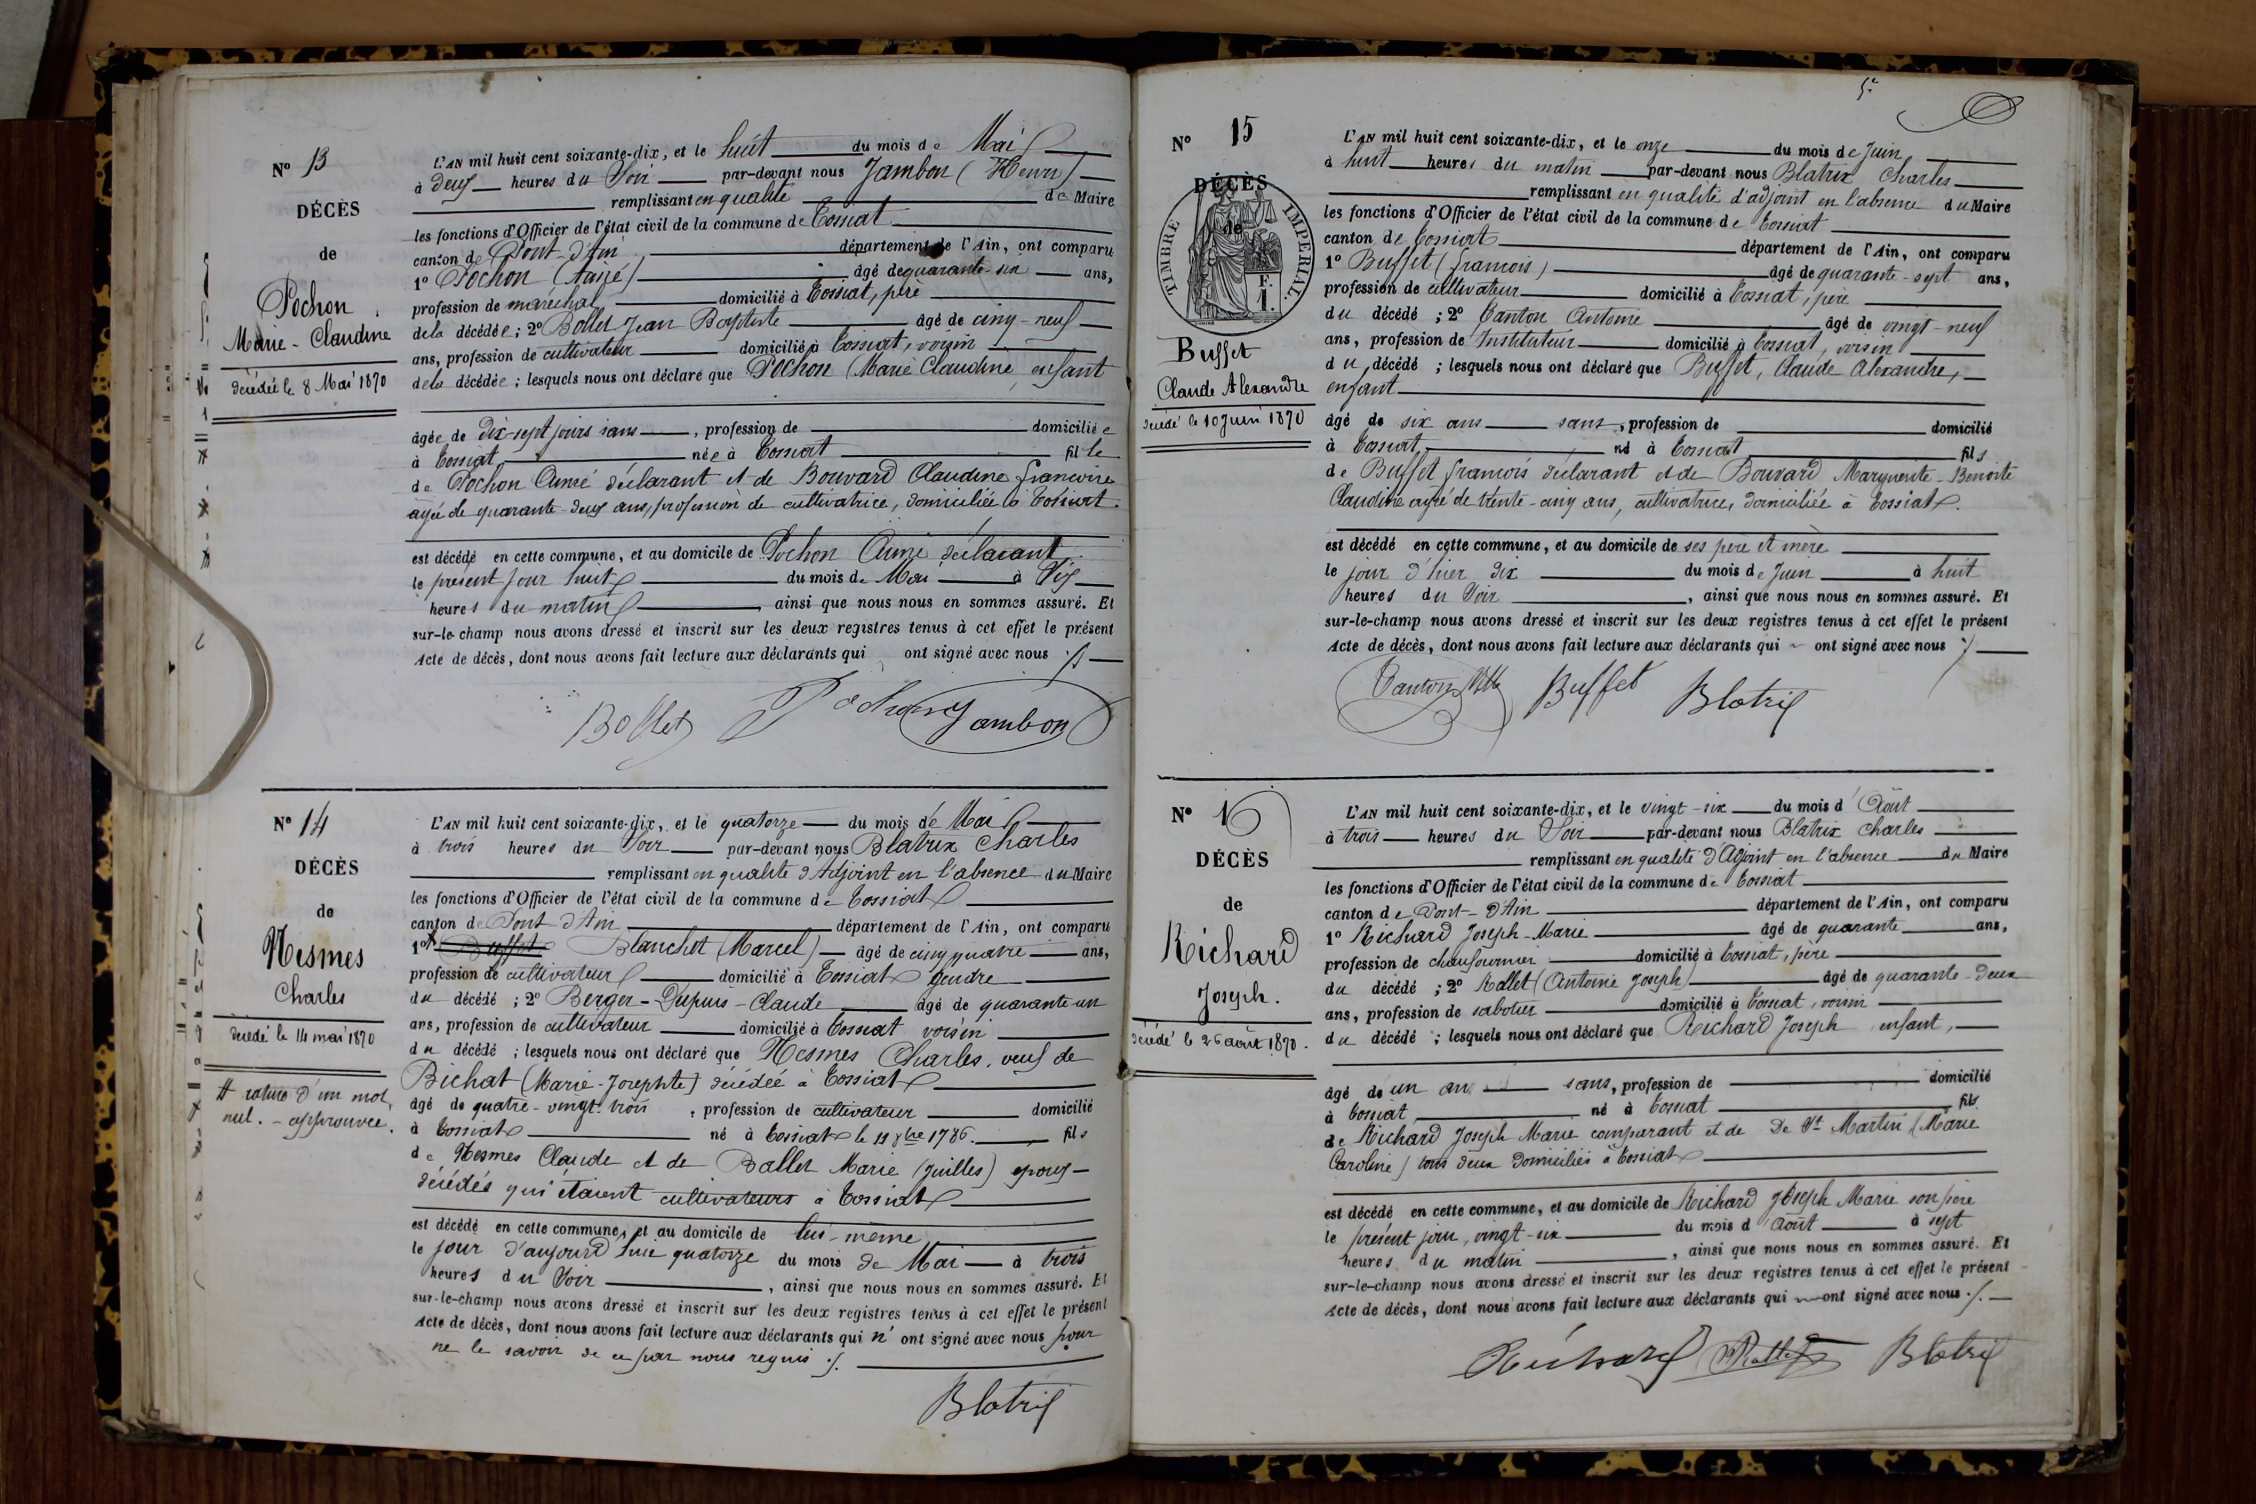 Nº 13
DÉCÈS
de
Pochon
Marie-Claudine
décédée le 8 Mai 1870
L'AN mil huit cent soixante-dix, et le huit du mois de Mai
à deux heures du Soir par-devant nous Jambon (Henri)
remplissant en qualité de Maire
les fonctions d'Officier de l'état civil de la commune de Tossiat
canton de Pont-d'Ain département de l'Ain, ont comparu
1º Pochon (Aimé) âgé de quarante-six ans,
profession de maréchal domicilié à Tossiat, père
de la décédée ; 2º Bollet Jean Baptiste âgé de cinq-neuf
ans, profession de cultivateur domicilié à Tossiat, voisin
de la décédée ; lesquels nous ont déclaré que Pochon (Marie Claudine, enfant
âgée de dix-sept jours sans, profession de domiciliée
à Tossiat née à Tossiat fille
de Pochon Aimé déclarant et de Bouvard Claudine françoise
agée de quarante-deux ans, profession de cultivatrice, domiciliée à Tossiat.
est décédé en cette commune, et au domicile de Pochon Aimé déclarant
le présent jour huit du mois de Mai à dix
heures du matin, ainsi que nous nous en sommes assuré. Et
sur-le-champ nous avons dressé et inscrit sur les deux registres tenus à cet effet le présent
Acte de décès, dont nous avons fait lecture aux déclarants qui ont signé avec nous ./.
Bollet Pochon Jambon
Nº 14
DÉCÈS
de
Nesmes
Charles
décédé le 14 mai 1870
# rature d'un mot
nul. - approuvée.
L'AN mil huit cent soixante-dix, et le quatorze du mois de Mai
à trois heures du Soir par-devant nous Blatrix Charles
remplissant en qualité d'Adjoint en l'absence du Maire
les fonctions d'Officier de l'état civil de la commune de Tossiat
canton de Pont d'Ain département de l'Ain, ont comparu
1º # Buffet Blanchet (Marcel) âgé de cinq quatre ans,
profession de cultivateur domicilié à Tossiat gendre
du décédé ; 2º Berger-Dupuis-Claude âgé de quarante un
ans, profession de cultivateur domicilié à Tossiat voisin
du décédé ; lesquels nous ont déclaré que Nesmes Charles, veuf de
Bichat (Marie-Josephte) décédée à Tossiat
âgé de quatre-vingt trois, profession de cultivateur domicilié
à Tossiat né à Tossiat le 11 8bre 1786. fils
de Nesmes Claude et de Ballet Marie (Juilles) époux
décédés qui étaient cultivateurs à Tossiat
est décédé en cette commune, et au domicile de lui-même
le jour d'aujourd'hui quatorze du mois de Mai à trois
heures du Soir, ainsi que nous nous en sommes assuré. Et
sur-le-champ nous avons dressé et inscrit sur les deux registres tenus à cet effet le présent
Acte de décès, dont nous avons fait lecture aux déclarants qui n'ont signé avec nous pour
ne le savoir de ce par nous requis ./.
Blatrix
5e
Nº 15
DÉCÈS
de
TIMBRE IMPERIAL.
1 F.
Buffet
Claude Alexandre
décédé le 10 Juin 1870
L'AN mil huit cent soixante-dix, et le onze du mois de Juin
à huit heures du matin par-devant nous Blatrix Charles
remplissant en qualité d'adjoint en l'absence du Maire
les fonctions d'Officier de l'état civil de la commune de Tossiat
canton de Tossiat département de l'Ain, ont comparu
1º Buffet (françois) âgé de quarante-sept ans,
profession de cultivateur domicilié à Tossiat, père
du décédé ; 2º Canton Antoine âgé de vingt-neuf
ans, profession de Instituteur domicilié à Tossiat, voisin
du décédé ; lesquels nous ont déclaré que Buffet, Claude Alexandre,
enfant
âgé de six ans sans, profession de domicilié
à Tossiat né à Tossiat fils
de Buffet françois déclarant et de Bouvard Marguerite-Benoite
Claudine agée de trente-cinq ans, cultivatrice, domiciliée à Tossiat.
est décédé en cette commune, et au domicile de ses père et mère
le jour d'hier dix du mois de Juin à huit
heures du Soir, ainsi que nous nous en sommes assuré. Et
sur-le-champ nous avons dressé et inscrit sur les deux registres tenus à cet effet le présent
Acte de décès, dont nous avons fait lecture aux déclarants qui ont signé avec nous ./.
Canton Buffet Blatrix
Nº 16
DÉCÈS
de
Richard
Joseph.
décédé le 26 août 1870.
L'AN mil huit cent soixante-dix, et le vingt-six du mois d'Août
à trois heures du Soir par-devant nous Blatrix Charles
remplissant en qualité d'Adjoint en l'absence du Maire
les fonctions d'Officier de l'état civil de la commune de Tossiat
canton de Pont-d'Ain département de l'Ain, ont comparu
1º Richard Joseph-Marie âgé de quarante ans,
profession de chaufournier domicilié à Tossiat, père
du décédé ; 2º Rollet (Antoine Joseph) âgé de quarante-deux
ans, profession de sabotier domicilié à Tossiat, voisin
du décédé ; lesquels nous ont déclaré que Richard Joseph enfant,
âgé de un an sans, profession de domicilié
à Tossiat né à Tossiat fils
de Richard Joseph Marie comparant et de De St Martin (Marie
Caroline) tous deux domiciliés à Tossiat
est décédé en cette commune, et au domicile de Richard Joseph Marie son père
le présent jour, vingt-six du mois d'août à sept
heures du matin, ainsi que nous nous en sommes assuré. Et
sur-le-champ nous avons dressé et inscrit sur les deux registres tenus à cet effet le présent
Acte de décès, dont nous avons fait lecture aux déclarants qui ont signé avec nous ./.
Richard Rollet Blatrix